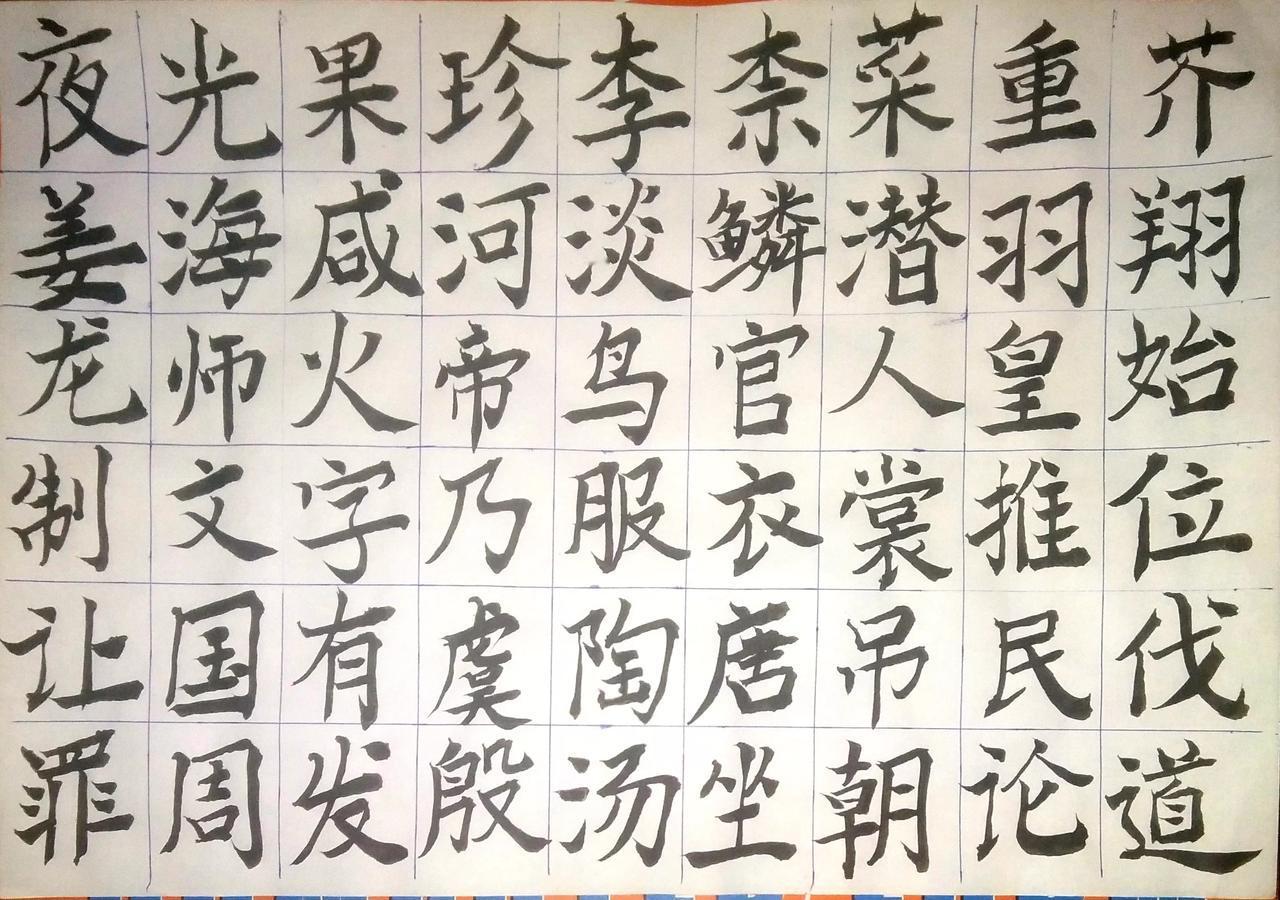 夜光果珍李柰菜重芥
姜海咸河淡鳞潜羽翔
龙师火帝鸟官人皇始
制文字乃服衣裳推位
让国有虞陶唐吊民伐
罪周发殷汤坐朝论道